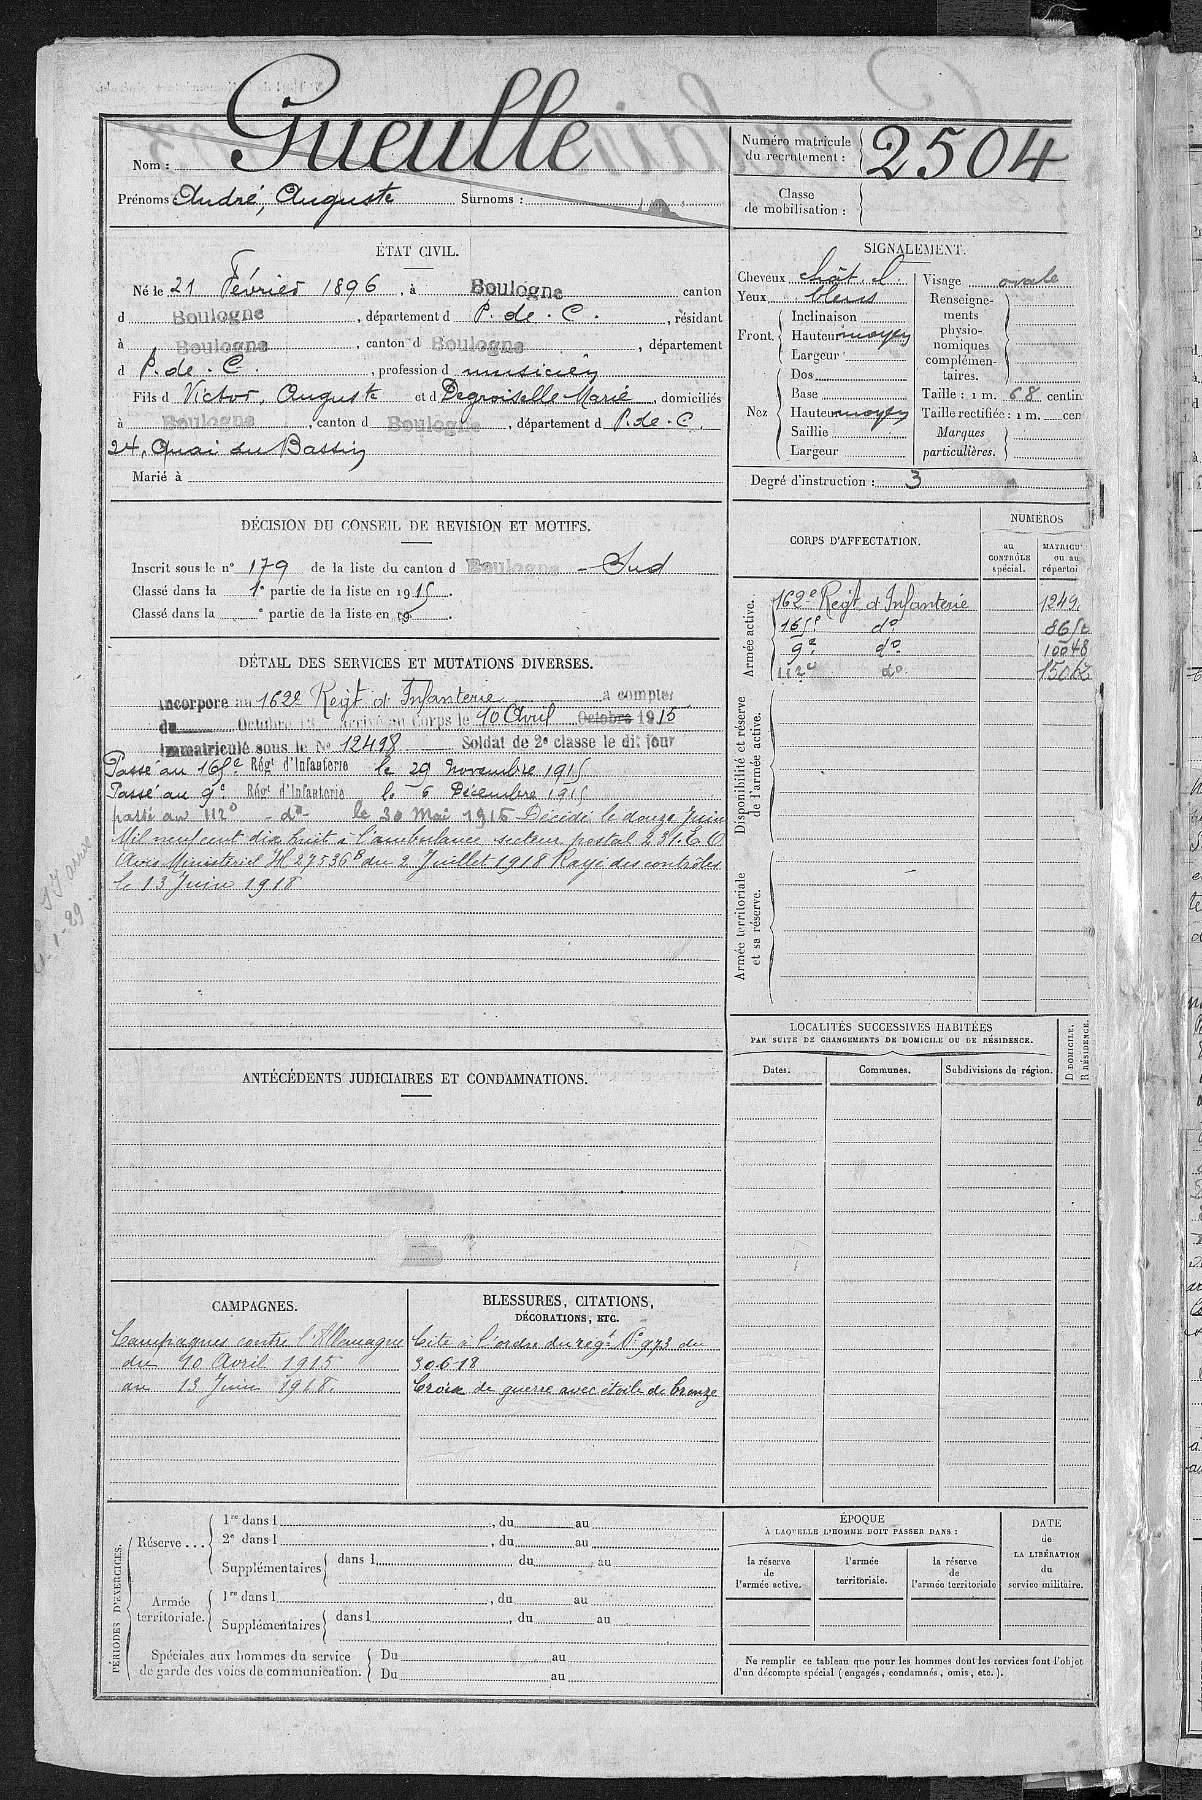 Nom : Gueulle
Prénoms : André, Auguste Surnoms :
Numéro matricule du recrutement : 2504
Classe de mobilisation :
ÉTAT CIVIL.
Né le 21 Février 1896, à Boulogne canton
d Boulogne, département d P. de. C., résidant
à Boulogne, canton d Boulogne, département
d P. de. C., profession d musicien
Fils d Victor, Auguste et d Degroiselle Marie, domiciliés
à Boulogne, canton d Boulogne, département d P. de. C.
24, Quai du Bassin
Marié à
SIGNALEMENT.
Cheveux chât. cl.
Yeux bleus
Front
Inclinaison
Hauteur moyen
Largeur
Nez
Dos
Base
Hauteur moyen
Saillie
Largeur
Visage ovale
Renseigne-
ments
physio-
nomiques
complémen-
taires.
Taille : 1 m. 68 centim
Taille rectifiée : 1 m. cen
Marques
particulières.
Degré d'instruction : 3
DÉCISION DU CONSEIL DE REVISION ET MOTIFS.
Inscrit sous le n° 179 de la liste du canton d Boulogne - Sud
Classé dans la 1e partie de la liste en 1915.
Classé dans la e partie de la liste en 19
DÉTAIL DES SERVICES ET MUTATIONS DIVERSES.
Incorporé au 162e Regt d'Infanterie à compter
du Octobre arrivé au Corps le 10 Avril Octobre 1915
Immatriculé sous le No 12498 Soldat de 2e classe le dit jour
Passé au 165e Régt d'Infanterie le 29 novembre 1915
Passé au 9e Régt d'Infanterie le 6 Décembre 1915
passé au 112e - do - le 30 Mai 1916 Décédé le douze Juin
Mil neuf cent dix huit à l'ambulance secteur postal 231.
Avis Ministériel 27536 du 2 Juillet 1918 Rayé des contrôles
le 13 Juin 1918
CORPS D'AFFECTATION.
NUMÉROS
au
CONTRÔLE
spécial.
MATRICU
ou au
répertoi
Armée active.
162e Regt d'Infanterie 1249
165e do
9e do 10048
112e do
Disponibilité et réserve
de l'armée active.
Armée territoriale
et sa réserve.
LOCALITÉS SUCCESSIVES HABITÉES
PAR SUITE DE CHANGEMENTS DE DOMICILE OU DE RÉSIDENCE.
Dates. Communes. Subdivisions de région. D DOMICILE. R RÉSIDENCE.
ANTÉCÉDENTS JUDICIAIRES ET CONDAMNATIONS.
CAMPAGNES.
Campagnes contre l'Allemagne
du 10 Avril 1915
au 13 Juin 1918.
BLESSURES, CITATIONS,
DÉCORATIONS, ETC.
Cité à l'ordre du régt No 973 du
30.6.18
Croix de guerre avec étoile de bronze
PÉRIODES D'EXERCICES.
Réserve ...
1re dans l , du au
2e dans l , du au
Supplémentaires dans l du au
Armée
territoriale.
1re dans l , du au
Supplémentaires dans l , du au
Spéciales aux hommes du service
de garde des voies de communication.
Du au
Du au
ÉPOQUE
À LAQUELLE L'HOMME DOIT PASSER DANS :
la réserve
de
l'armée active.
l'armée
territoriale.
la réserve
de
l'armée territoriale
DATE
de
LA LIBÉRATION
du
service militaire.
Ne remplir ce tableau que pour les hommes dont les services font l'objet
d'un décompte spécial (engagés, condamnés, omis, etc.).